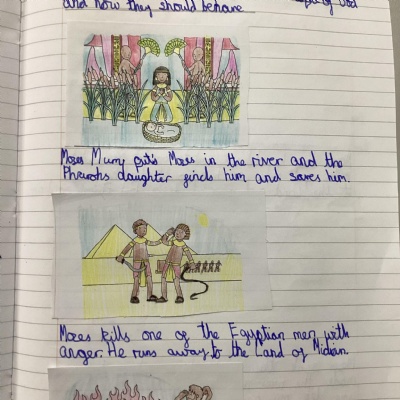 and how they should behave
of God
Moses Mumy puts Moses in the river and the
Pharohs daughter finds him and saves him.
Moses kills one of the Egyptian men with
anger. He runs away to the Land of Midian